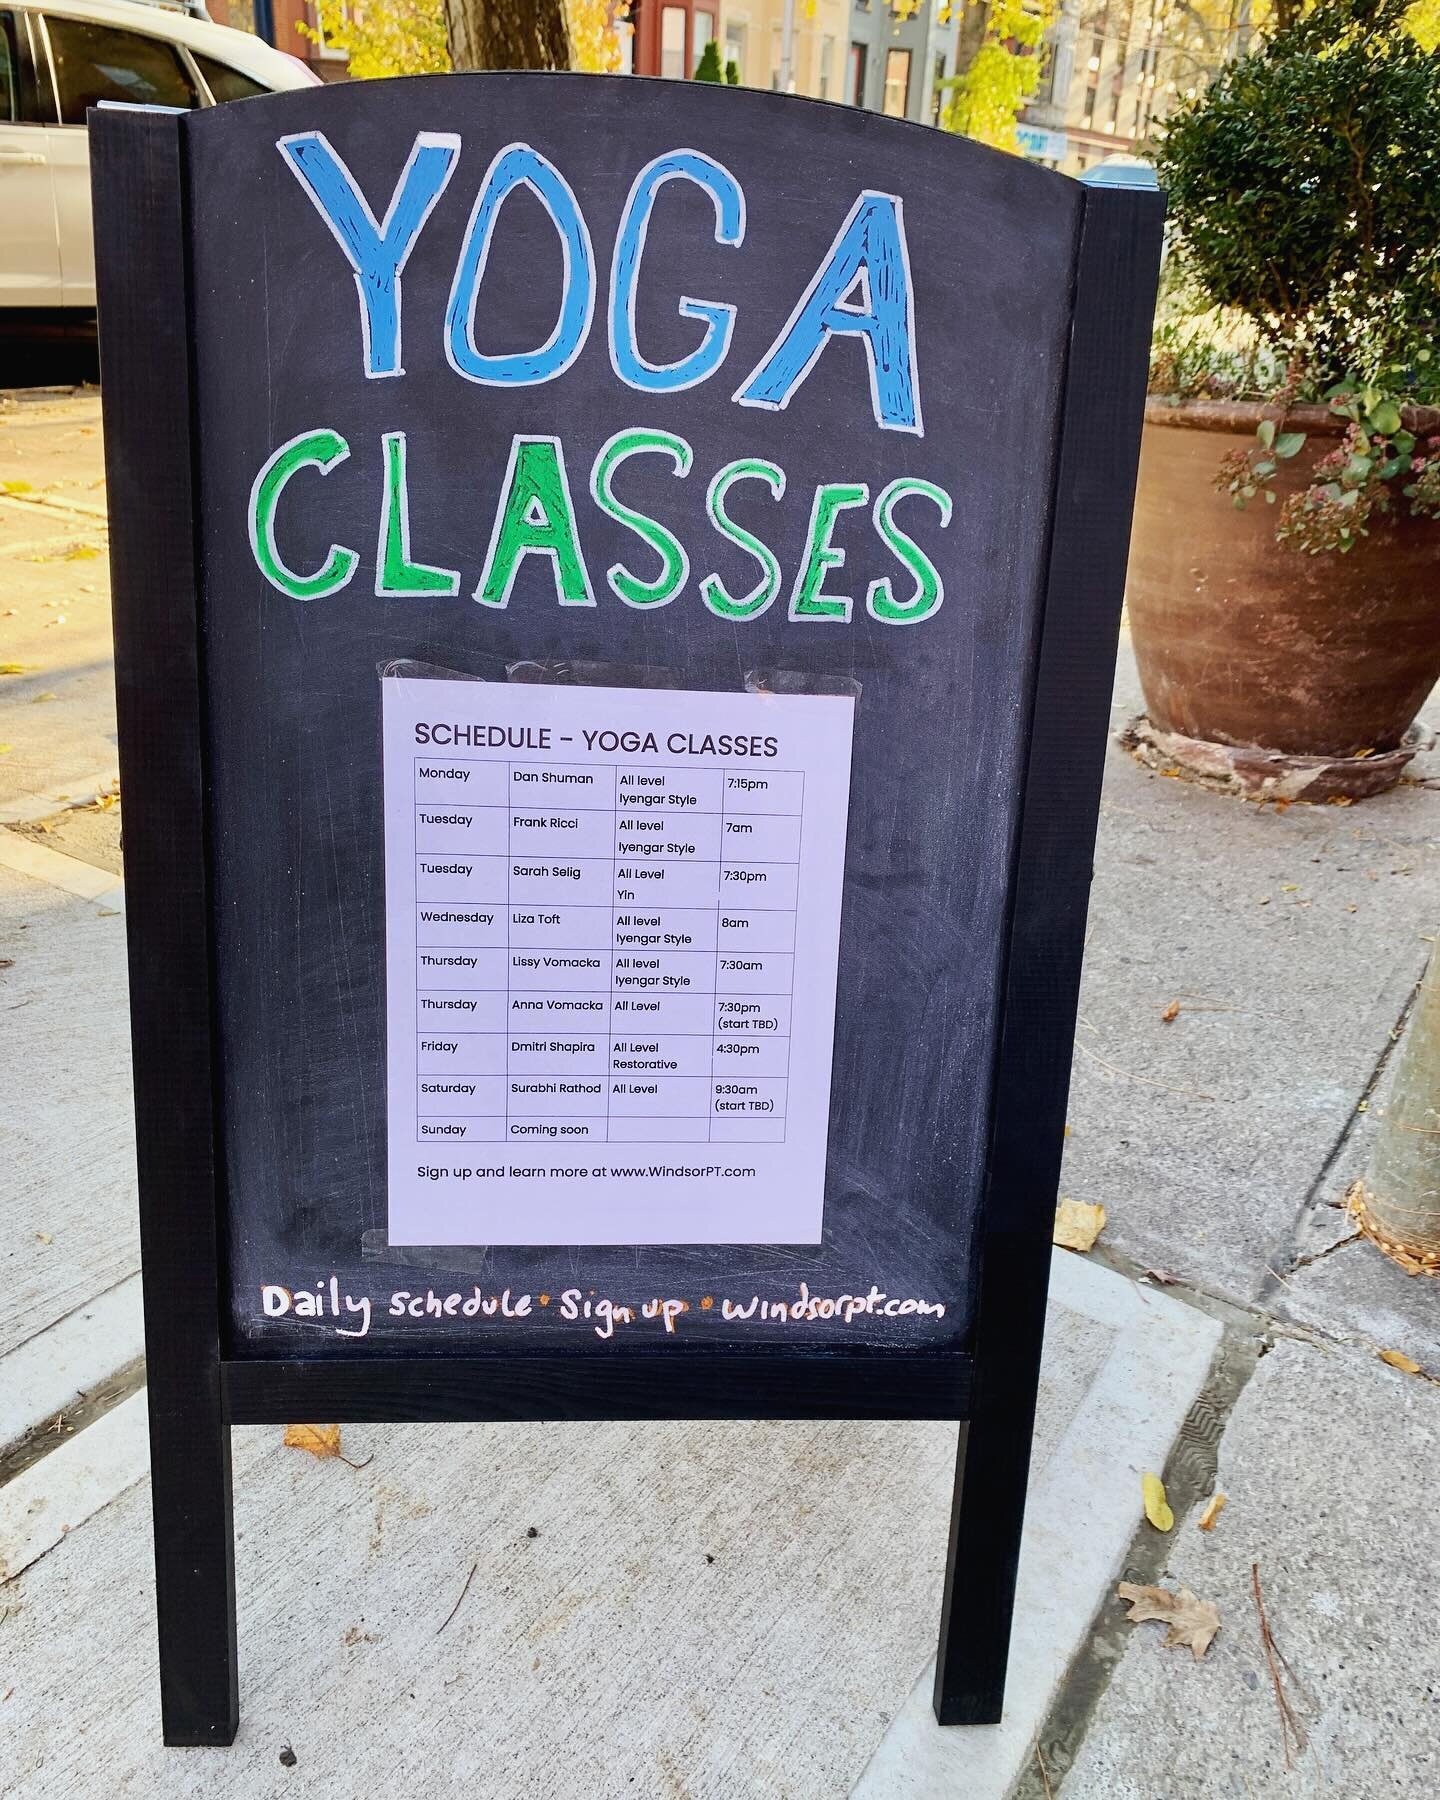 YOGA
CLASSES
SCHEDULE - YOGA CLASSES
Monday Dan Shuman All level Iyengar Style 7:15pm
Tuesday Frank Ricci All level Iyengar Style 7am
Tuesday Sarah Selig All Level Yin 7:30pm
Wednesday Liza Toft All level Iyengar Style 8am
Thursday Lissy Vomacka All level Iyengar Style 7:30am
Thursday Anna Vomacka All Level 7:30pm (start TBD)
Friday Dmitri Shapira All Level Restorative 4:30pm
Saturday Surabhi Rathod All Level 9:30am (start TBD)
Sunday Coming soon
Sign up and learn more at www.WindsorPT.com
Daily schedule • Sign up • windsorpt.com